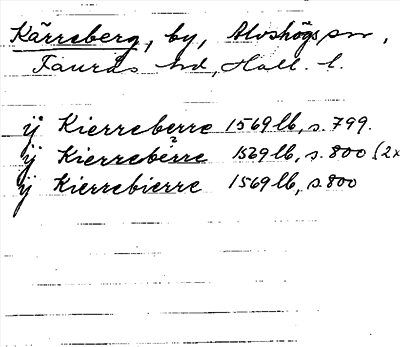 Kärreberg, by, Alvshögs sn,
Faurås hd, Hall. l.
ij Kierreberre 1569 lb, s. 799.
ij Kierreberre 1569 lb, s. 800 (2x
ij Kierrebierre 1569 lb, s 800